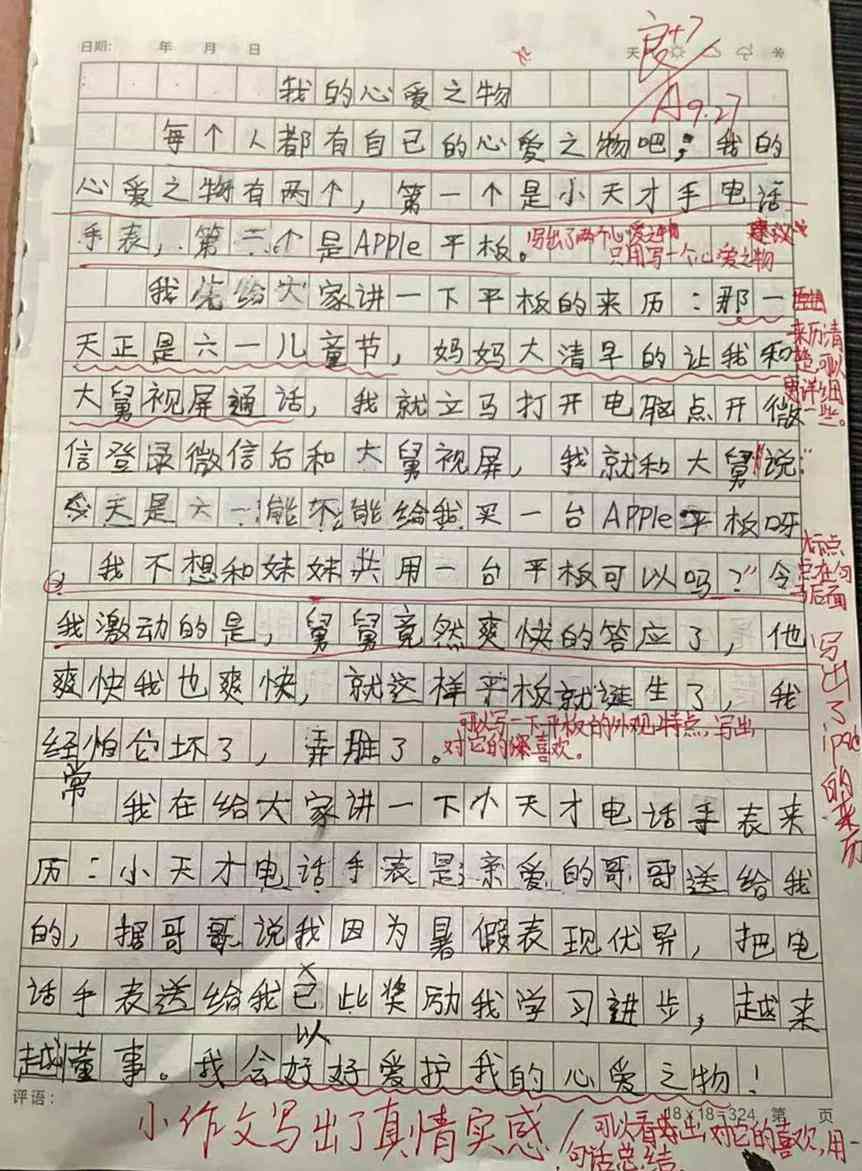 日期: 年 月 日
天
良+7
A 9.27
我的心爱之物
每个人都有自己的心爱之物吧；我的
心爱之物有两个，第一个是小天才手电话
手表，第二个是APPle平板。
写出了两个心爱之物
建议
只用写一个心爱之物
我先给大家讲一下平板的来历：那一
天正是六一儿童节，妈妈大清早的让我和
来历清
楚，可以
写详细
一些。
大舅视屏通话，我就立马打开电脑点开微
信登录微信后和大舅视屏，我就和大舅说"
今天是六一能不能给我买一台APPle平板呀
我不想和妹妹共用一台平板可以吗？"令
标点
点在句
号后面
我激动的是，舅舅竟然爽快的答应了，他
爽快我也爽快，就这样平板就诞生了，我
经常怕它坏了，弄脏了。
可以写一下平板的外观，特点，写出
对它的深喜欢。
写出了ipad的来历
我在给大家讲一下小天才电话手表来
历：小天才电话手表是亲爱的哥哥送给我
的，据哥哥说我因为暑假表现优异，把电
话手表送给我已此奖励我学习进步，越来
以
越懂事。我会好好爱护我的心爱之物！
评语：
18×18=324 第 页
小作文写出了真情实感
可以看出对它的喜欢，用一
句话总结